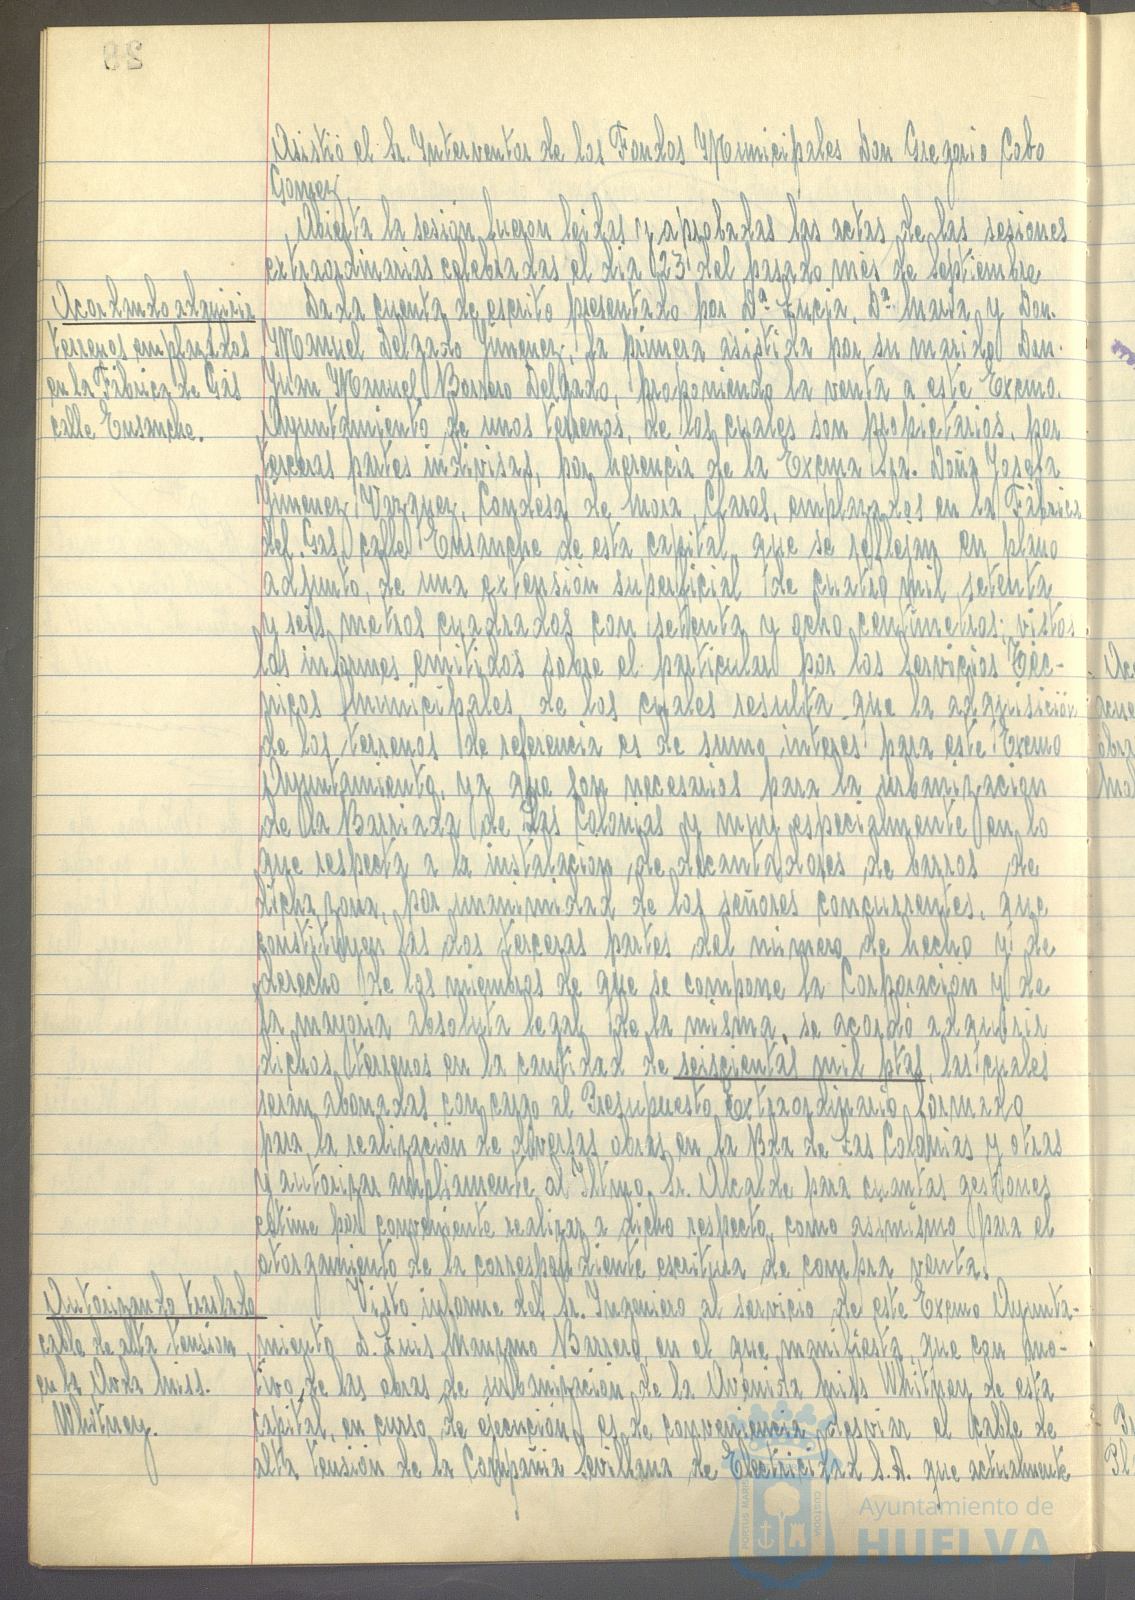 28
Asistió el Sr. Interventor de los Fondos Municipales Don Gregorio Cobo
Gomez
Abierta la sesión fueron leidas y aprobadas las actas de las sesiones
extraordinarias celebradas el dia 23 del pasado mes de Septiembre
Acordando adquirir
terrenos emplazados
en la Fábrica de Gas
calle Ensanche.
Dada cuenta de escrito presentado por Dª Lucia, Dª María y Don.
Manuel Delgado Jimenez, la primera asistida por su marido Don.
Juan Manuel Borrero Delgado, proponiendo la venta a este Excmo.
Ayuntamiento de unos terrenos, de los cuales son propietarios, por
terceras partes indivisas, por herencia de la Excma Sra. Doña Josefa
Jimenez Vazquez, Condesa de Mora Claros, emplazados en la Fábrica
del Gas, calle Ensanche de esta capital, que se reflejan en plano
adjunto, de una extensión superficial de cuatro mil setenta
y seis metros cuadrados con setenta y ocho centimetros; vistos
los informes emitidos sobre el particular por los Servicios Téc-
nicos Municipales de los cuales resulta que la adquisición
de los terrenos de referencia es de sumo interes para este Excmo
Ayuntamiento, ya que son necesarios para la urbanizacion
de la Barriada de Las Colonias y muy especialmente en lo
que respecta a la instalación de decantadores de barros de
dicha zona, por unanimidad de los señores concurrentes, que
constituyen las dos terceras partes del número de hecho y de
derecho de los miembros de que se compone la Corporación y de
la mayoria absoluta legal de la misma, se acordó adquirir
dichos terrenos en la cantidad de seiscientas mil ptas, las cuales
serán abonadas con cargo al Presupuesto Extraordinario formado
para la realización de diversas obras en la Bda de Las Colonias y otras
y autorizar ampliamente al Iltmo. Sr. Alcalde para cuantas gestiones
estime por conveniente realizar a dicho respecto, como asimismo para el
otorgamiento de la correspondiente escritura de compra venta.
Autorizando traslado
cable de alta tensión
en la Avda Miss.
Whitney.
Visto informe del Sr. Ingeniero al servicio de este Excmo Ayunta-
miento D. Luis Manzano Barrero, en el que manifiesta que con mo-
tivo de las obras de urbanización de la Avenida Miss Whitney de esta
capital, en curso de ejecución, es de conveniencia desviar el cable de
alta tensión de la Compañia Sevillana de Electricidad S.A. que actualmente
PORTUS MARIS
CUSTODIA
Ayuntamiento de
HUELVA